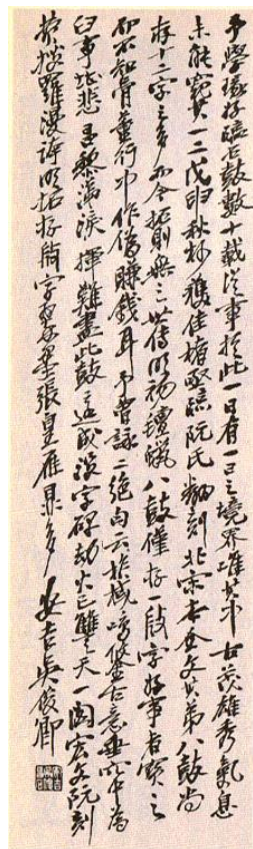 予学篆好臨石鼓數十載从事於此一日有一日之境界唯其中古茂雄秀氣息
未能窺其一二戊申秋杪獲佳楮敬臨阮氏翻刻北宋本全文其弟八鼓尚
存十二字之多而今拓則無之世傳明初氊蠟八鼓僅存一段字好事者寶之
却不知骨董行中作偽賺錢耳予曾詠二絕句云柞棫鳴條古意垂穴中為
臼事堪悲昌黎涕淚揮難盡此鼓還成沒字碑劫火已雙天一閣宏文阮刻
費搜羅漫誇明拓存段字翠墨張皇雁鼎多 安吉吳俊卿